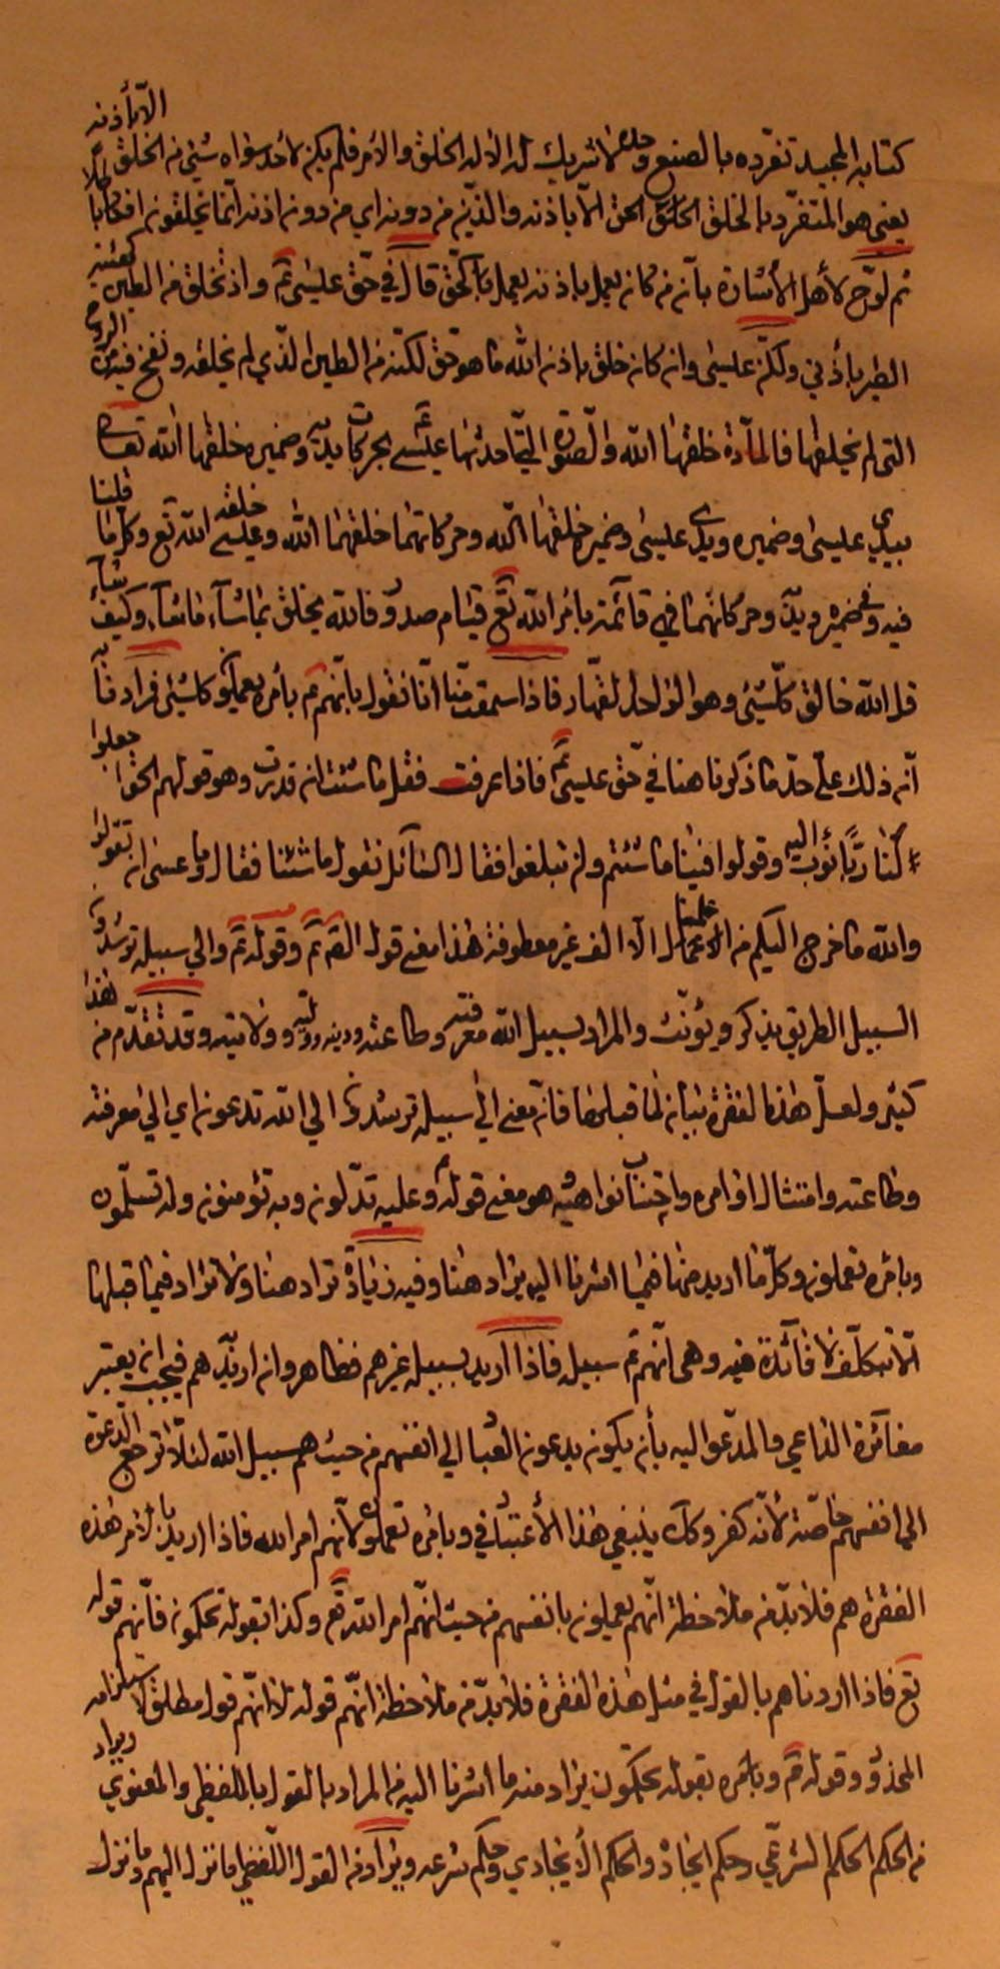 كتابه المجيد تفرّده بالصنع وحده لا شريك له الا له الخلق والامر فلم يكن لأحد سواه شيئ من الخلق الّا بأذنه
يعني هو المتفرّد بالخلق الخالق الحق الّا باذنه والذين من دونه اي من دون اذنه انّما يخلقون افكا
ثم لوّح لأهل الأشارة بأن من كان يعمل باذنه يعمل بالحّق قال في حّق عليسى ع واذ تخلق من الطين كهيئة
الطير بأذني ولكن عليسى وان كان خلق باذن الله ما هو حق لكنّه من الطين الذّي لم يخلقه ونفخ فيه من الروح
التي لم يخلقها فالمادّة خلقها الله والصّورة الّتي احدثها عليسى ع بحركات يديه وضميره خلقها الله تعالى
بيدي عليسى وضميره ويدي عليسى وضميره خلقها الله وحركاتهما خلقهما الله وعليسى خلقه الله تع وكل ما قلنا
فيه وفي ضميره ويديه وحركاتهما فهي قائمة بأمر الله تع قيام صدور فالله يخلق بما شاء ما شاء وكيف شاء
قل الله خالق كلّ شيئ وهو الواحد القهّار فاذا سمعت منّا انّا نقول بأنّهم ع بأمره يعملون كل شيئ فمرادنا به
انّه ذلك على حدّ ما ذكرنا هنا في حّق عليسى ع فاذا عرفت فقل ما شئت ان قدرت وهو قولهم الحق اجعلوا
لنا ربّا نؤب اليه وقولوا فينا ما شئتم ولن تبلغوا فقال السّائل نقول ما شئنا فقال وما عسى ان تقولوا
والله ما خرج اليكم من علمنا الّا الف غير معطوفة هذا معنى قول ع وقوله ع والي سبيله ترشدون
السبيل الطريق يذكر ويؤنّث والمراد بسبيل الله معرفته وطاعته ودينه وولايته وقد تقدّم من هذا
كثير ولعلّ هذه الفقرة بيان لما قبلها فانّ معنى الي سبيله ترشدون الي الله تدعون اي الي معرفته
وطاعته وامتثال اوامره واجتناب نواهيه هو معنى قوله ع وعليه تدّلون وبه تؤمنون وله تسلّمون
وبأمره تعملون وكلّ ما اريد منها فيما اشرنا اليه يراد هنا وفيه زيادة تراد هنا ولا تراد فيما قبلها
الّا بتكلّف لا فائدة فيه وهي انّهم ع سبيله فاذا اريد بسبيله غيرهم فظاهر وان اريد هم فيجب ان يعتبر
مغائرة الداعي والمدّعو اليه بأن يكون يدعون العباد الي انفسهم من حيث هم سبيل الله لئلّا ترجع الدّعوة
الي انفسهم خاصّة لأنّه كفر وكك ينبغي هذا الأعتبار في وبأمره تعملون لأنّهم امر الله فاذا اريد بالأمر هذه
الفقرة هم فلا بدّ من ملاحظة انّهم يعملون بانفسهم من حيث انّهم امر الله تع وكذا بقوله تحكمون فأنّهم قوله
تع فاذا اردناهم بالقول في مثل هذه الفقرة فلا بدّ من ملاحظة انّهم قوله لا انّهم قول مطلق لاستلزامه
المحذور وقوله ع وبأمره بقوله تحكمون يراد منه ما اشرنا اليه من المراد بالقول باللفظي والمعنوي ويراد
من الحكم الحكم الشرعّي وحكم ايجاد والحكم الأيجادي وحكم شرعه ويراد من القول اللّفظي ما نزل اليهم وما نزل